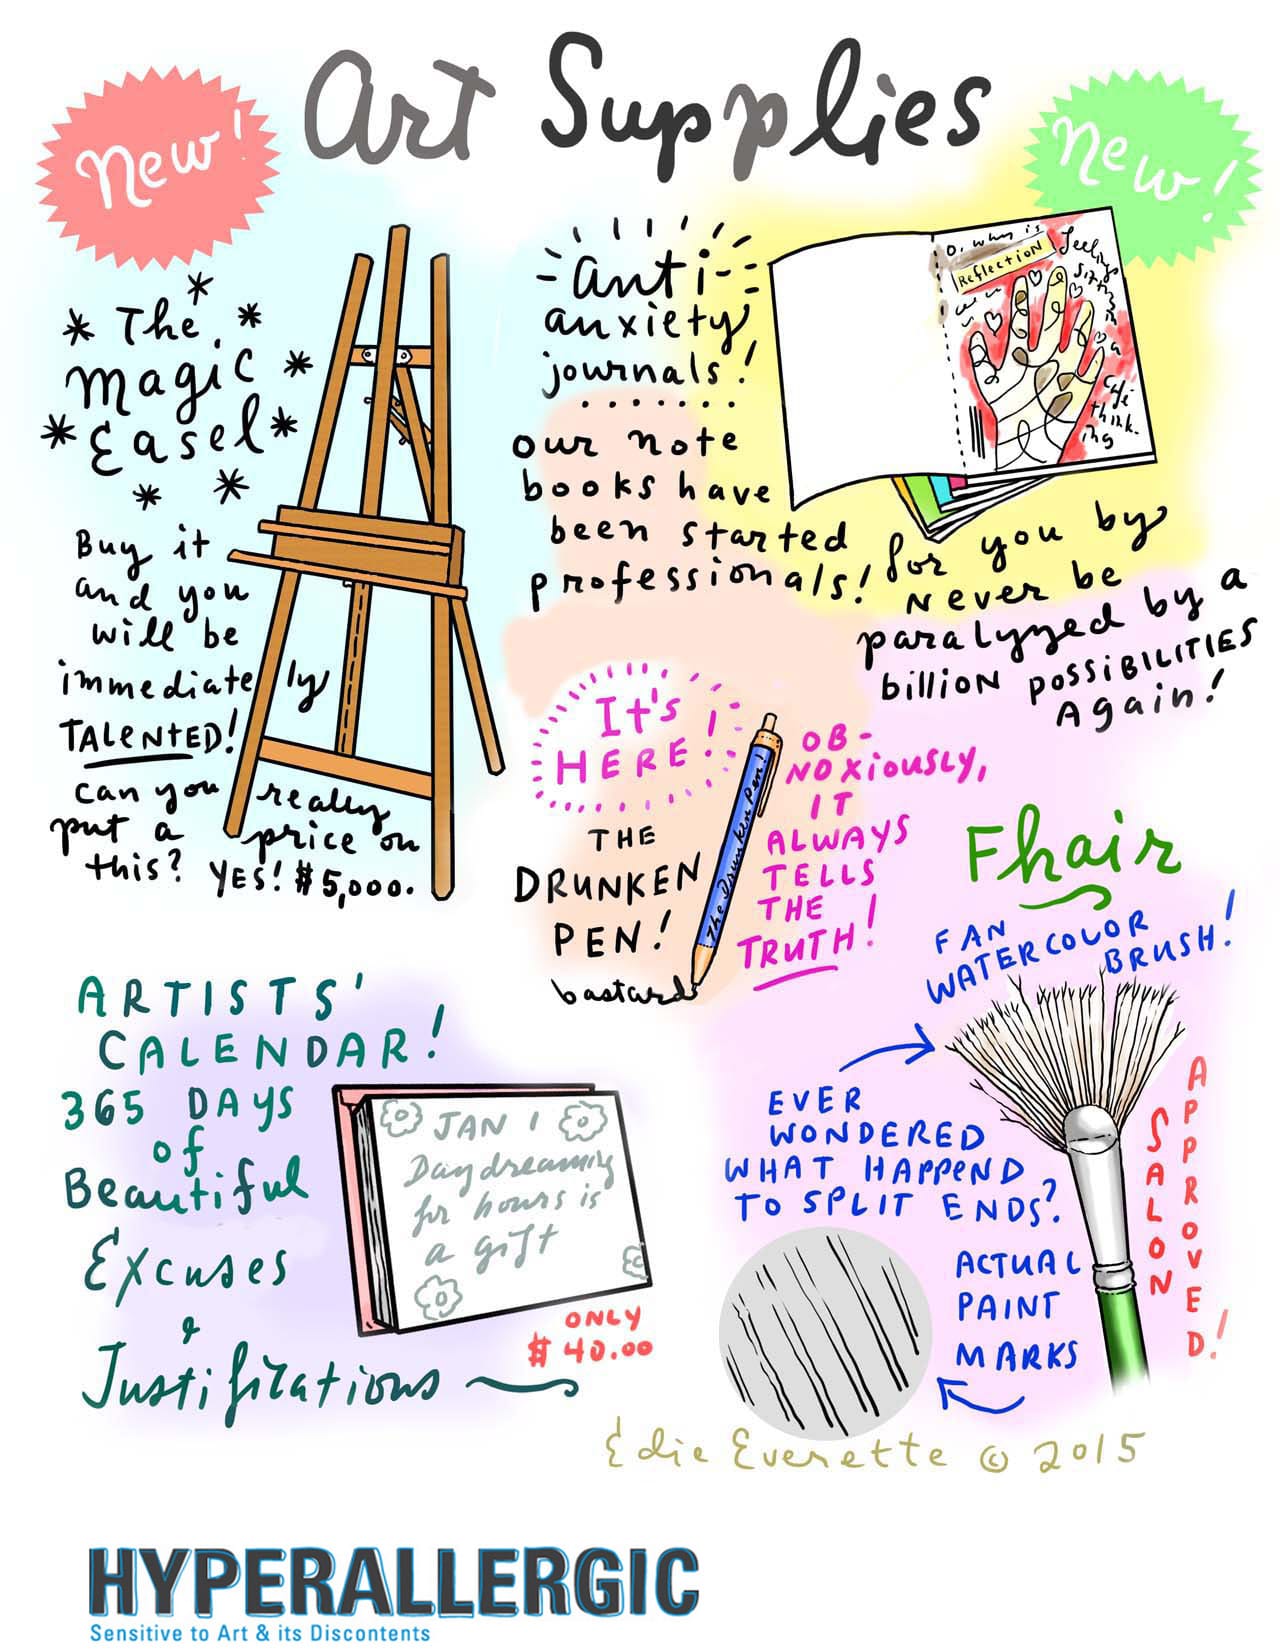 Art Supplies
New!
New!
The
Magic
Easel
Buy it
and you
will be
immediately
TALENTED!
can you really
put a price on
this? YES! $5,000.
anti-
anxiety
journals!
our note
books have
been started
professionals!
for you by
Never be
paralyzed by a
billion possibilities
Again!
O, why is
Reflection
feelings
sitting
in
a
café
think-
ing
It's
HERE!
THE
DRUNKEN
PEN!
bastard
The Drunken Pen!
OB-
NOXIOUSLY,
IT
ALWAYS
TELLS
THE
TRUTH!
Fhair
FAN
WATERCOLOR
BRUSH!
EVER
WONDERED
WHAT HAPPEND
TO SPLIT ENDS?
ACTUAL
PAINT
MARKS
SALON
APPROVED!
ARTISTS'
CALENDAR!
365 DAYS
of
Beautiful
Excuses
&
Justifications
JAN 1
Daydreaming
for hours is
a gift
ONLY
$40.00
Edie Everette © 2015
HYPERALLERGIC
Sensitive to Art & its Discontents